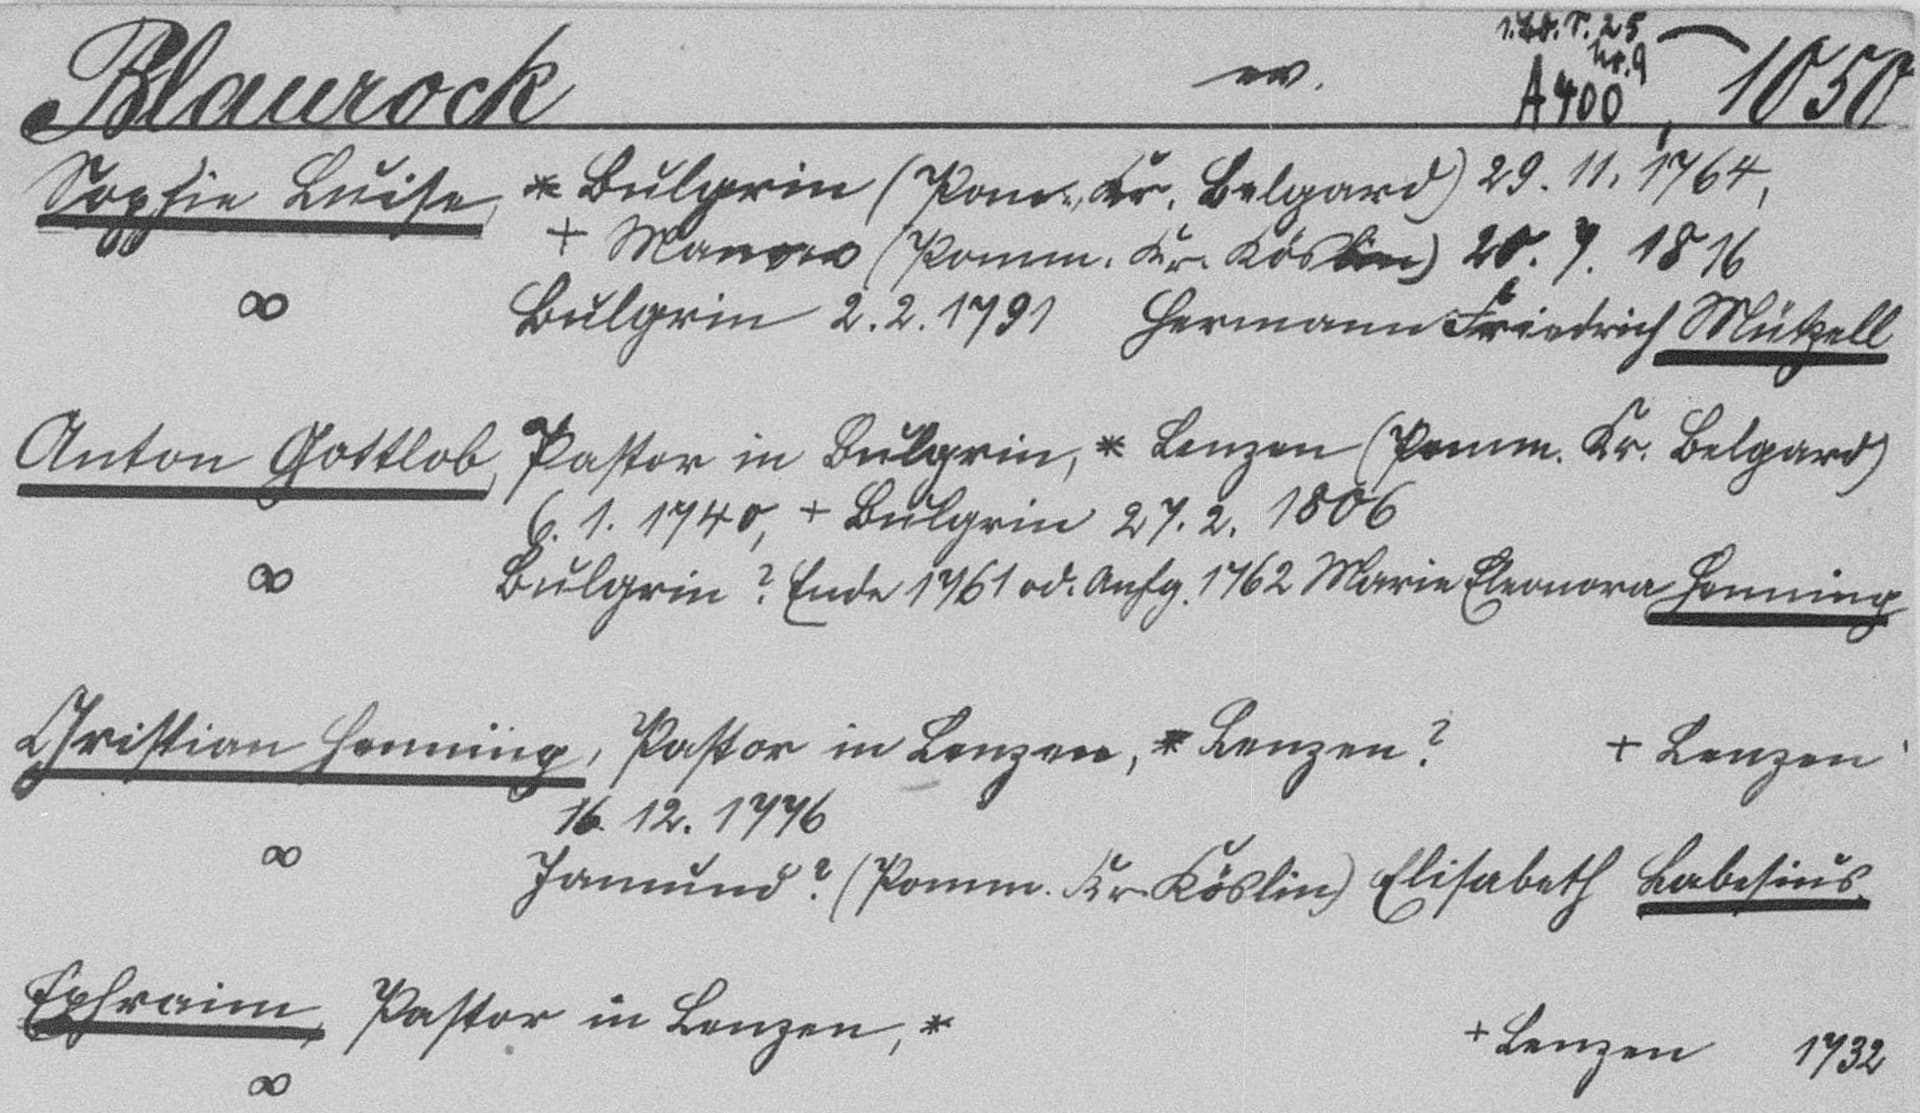 Blaurock ev. A 400, 1050
Nr. 9
Sophie Luise, * Bulgrin (Pom., Kr. Belgard) 29. 11. 1764,
+ Manow (Pomm. Kr. Köslin) 20. 7. 1816
∞ Bulgrin 2.2.1791 Hermann Friedrich Mützell
Anton Gottlob, Pastor in Bulgrin, * Lenzen (Pomm. Kr. Belgard)
6. 1. 1740, + Bulgrin 27. 2. 1806
∞ Bulgrin? Ende 1761 od. Anfg. 1762 Marie Eleonora Henning
Christian Henning, Pastor in Lenzen, * Lenzen? + Lenzen
16. 12. 1776
∞ Jamund? (Pomm. Kr. Köslin) Elisabeth Labesius
Ephraim, Pastor in Lenzen, * + Lenzen 1732
∞